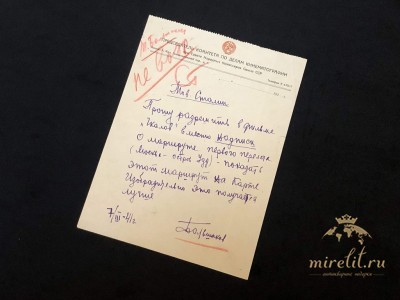 КОМИТЕТА ПО ДЕЛАМ КИНЕМАТОГРАФИИ
т. Большакову
не возр.
Ст
Тов Сталин
Прошу разрешить в фильме
"Чкалов" вместо надписи
о маршруте первого перелета
(Москва – остров Удд) – показать
этот маршрут на карте
Изобразительно это получается
лучше
7/III-41г
Большаков
mirelit.ru